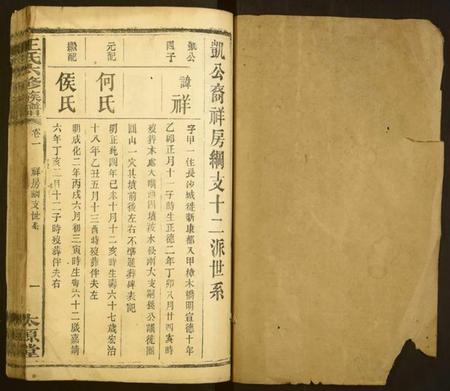 凱公裔祥房綱支十二派世系
凱公四子
諱祥
字甲一住長沙城徙新康都又甲樟木橋明宣德十年
乙卯正月十一子時生正德二年丁卯八月廿四亥時
圍山一穴其墳前後左右不準進葬碑表記
元配
何氏
明正統四年己未十月十二亥時生壽六十七歲弘治
十八年乙丑五月十三酉時歿葬伴夫左
繼配
侯氏
明成化二年丙戌六月初三寅時生壽六十二歲嘉靖
六年丁亥二月十二子時歿葬伴夫右
王氏六修族譜
卷一
祥房綱支世系
一
太原堂